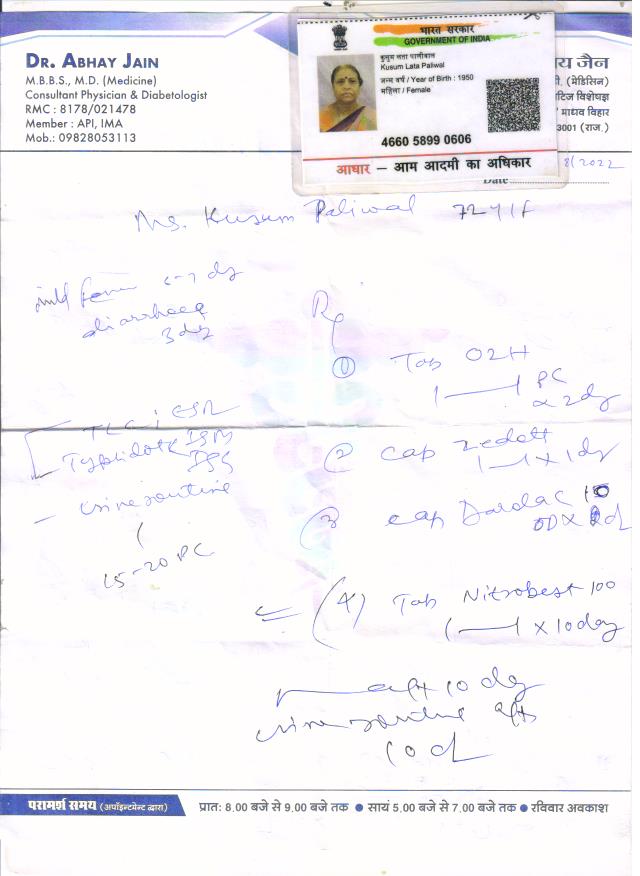 DR. ABHAY JAIN
M.B.B.S., M.D. (Medicine)
Consultant Physician & Diabetologist
RMC : 8178/021478
Member : API, IMA
Mob.: 09828053113
भारत सरकार
GOVERNMENT OF INDIA
कुसुम लता पालीवाल
Kusum Lata Paliwal
जन्म वर्ष / Year of Birth : 1950
महिला / Female
4660 5899 0606
आधार – आम आदमी का अधिकार
य जैन
डी. (मेडिसिन)
टिज विशेषज्ञ
माधव विहार
3001 (राज.)
Date 8/2022
Ms. Kusum Paliwal 72y/F
mild fever 6-7 dy
diarrhoea
3 dy
Rx
① Tab O2H
1——1 PC
x 2dy
TLC, ESR
Typhidot IGM
IGG
② Cap Zedott
1—1 x 1dy
– Urine routine
③ Cap Darolac 10
OD x d
15-20 PC
(4) Tab Nitrobest 100
1——1 x 10 day
aft 10 dy
urine routine aft
10 d
परामर्श समय (अपॉइन्टमेन्ट द्वारा)
प्रात: 8.00 बजे से 9.00 बजे तक ● सायं 5.00 बजे से 7.00 बजे तक ● रविवार अवकाश